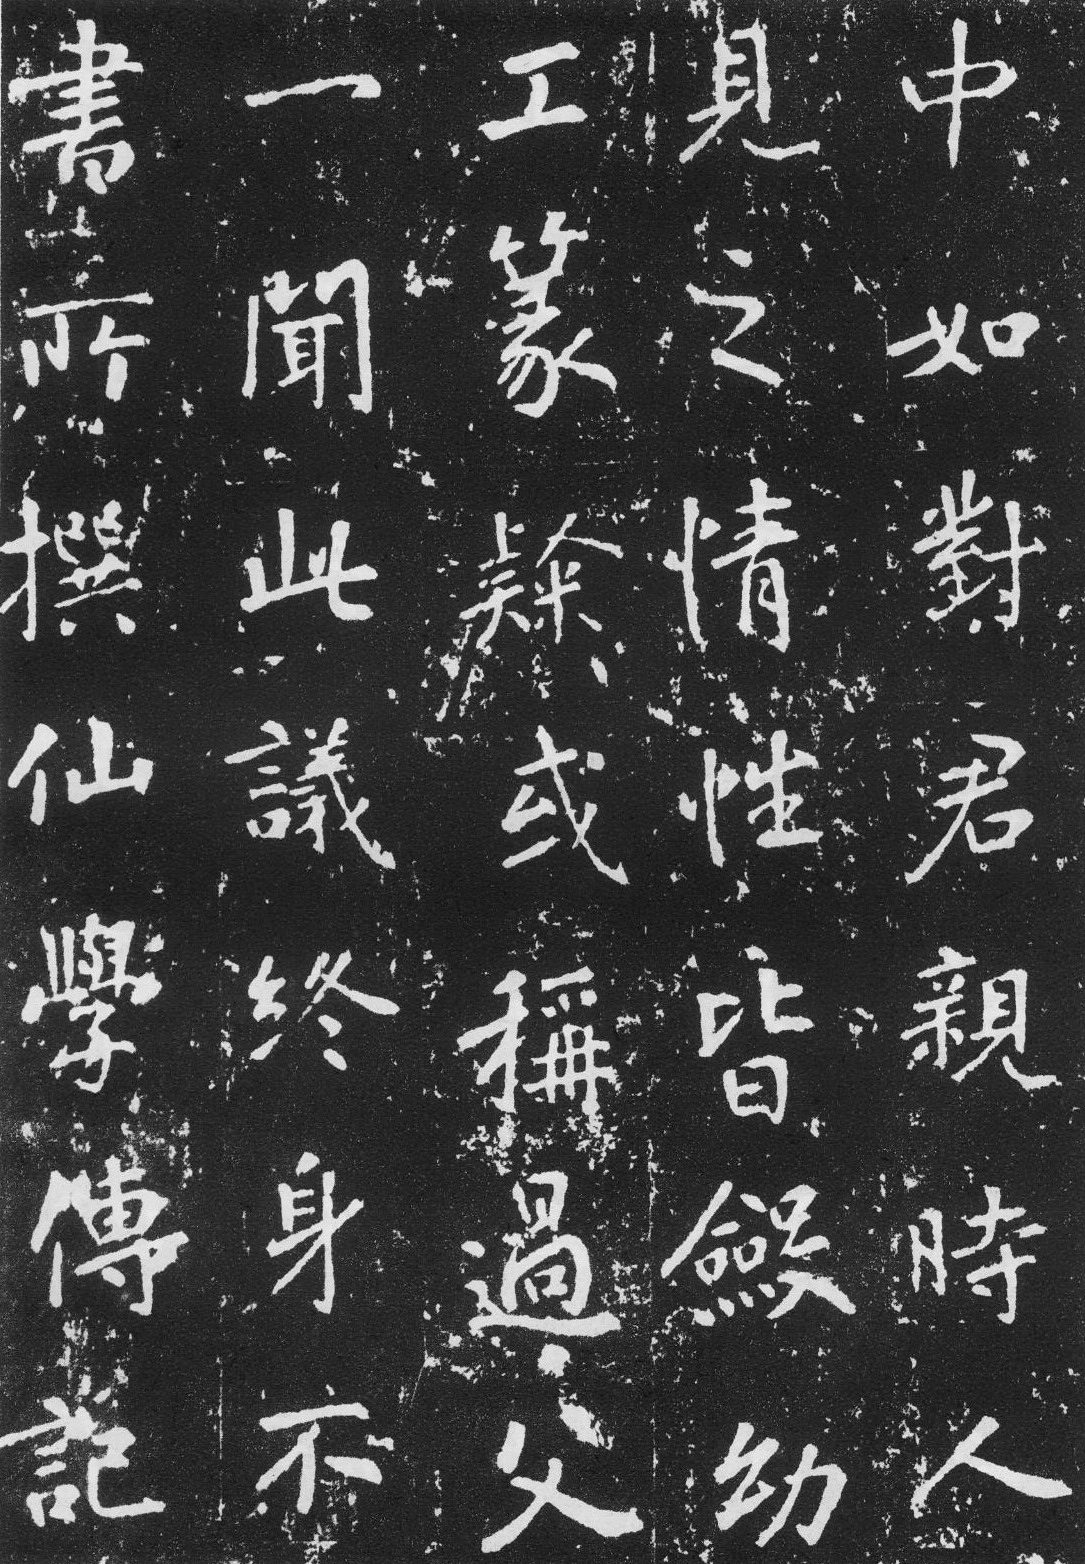 中如對君親時人
見之情性皆斂幼
工篆𨽻或稱過父
一聞此議終身不
書所撰仙學傳記